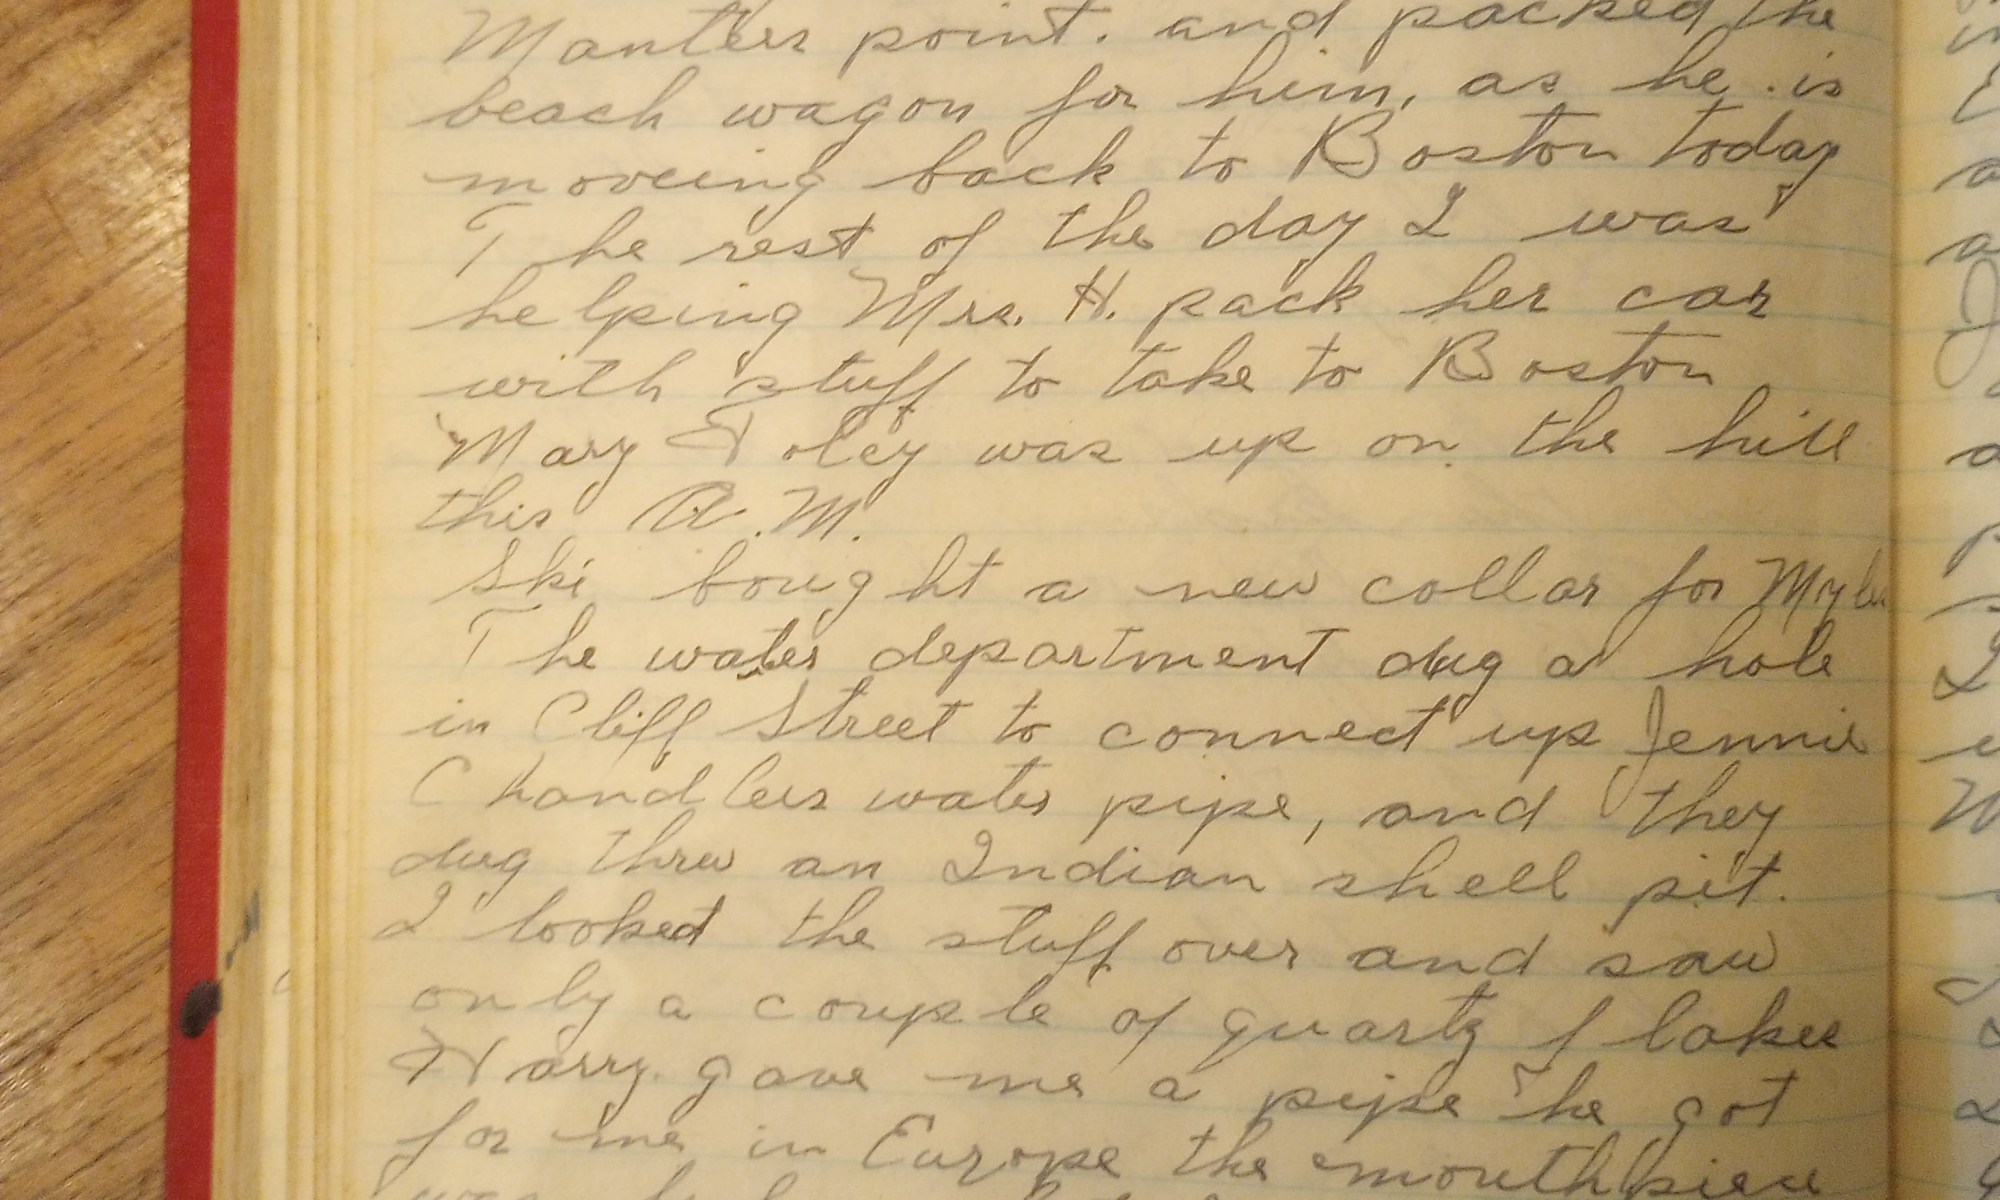 Manters point. and packed the
beach wagon for him, as he is
moveing back to Boston today
The rest of the day I was
helping Mrs. H. pack her car
with stuff to take to Boston
Mary Foley was up on the hill
this A.M.
Ski bought a new collar for
The water department dug a hole
in Cliff Street to connect up Jennie
Chandlers water pipe, and they
dug threw an Indian shell pit.
I looked the stuff over and saw
only a couple of quartz flakes
Harry gave me a pipe he got
for me in Europe the mouthpiece